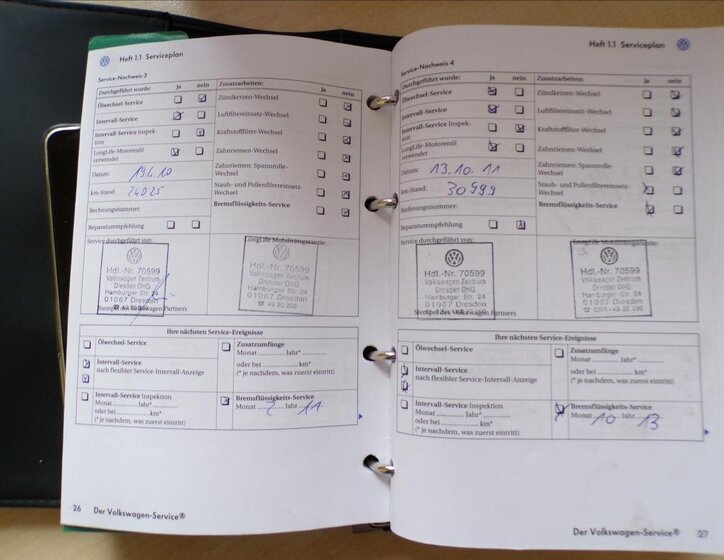 Heft 1.1 Serviceplan
Service-Nachweis 3
Durchgeführt wurde: ja nein Zusatzarbeiten: ja nein
Ölwechsel-Service Zündkerzen-Wechsel
Intervall-Service Luftfiltereinsatz-Wechsel
Intervall-Service Inspektion Kraftstofffilter-Wechsel
LongLife-Motorenöl verwendet Zahnriemen-Wechsel
Datum: 19.4.10 Zahnriemen: Spannrolle-Wechsel
km-Stand: 24025 Staub- und Pollenfiltereinsatz-Wechsel
Rechnungsnummer: Bremsflüssigkeits-Service
Reparaturempfehlung
Service durchgeführt von: LongLife Mobilitätsgarantie:
Hdl.-Nr. 70599 Hdl.-Nr. 70599
Volkswagen Zentrum Volkswagen Zentrum
Dresden OHG Dresden OHG
Hamburger Str. 24 Hamburger Str. 24
01067 Dresden 01067 Dresden
Stempel des Volkswagen Partners
Ihre nächsten Service-Ereignisse
Ölwechsel-Service Zusatzumfänge
Monat ........... Jahr* ...........
Intervall-Service oder bei ........... km*
nach flexibler Service-Intervall-Anzeige (* je nachdem, was zuerst eintritt)
Intervall-Service Inspektion Bremsflüssigkeits-Service
Monat ........... Jahr* ........... Monat 2 Jahr 11
oder bei ........... km*
(* je nachdem, was zuerst eintritt)
26 Der Volkswagen-Service®
Heft 1.1 Serviceplan
Service-Nachweis 4
Durchgeführt wurde: ja nein Zusatzarbeiten: ja nein
Ölwechsel-Service Zündkerzen-Wechsel
Intervall-Service Luftfiltereinsatz-Wechsel
Intervall-Service Inspektion Kraftstofffilter-Wechsel
LongLife-Motorenöl verwendet Zahnriemen-Wechsel
Datum: 13.10.11 Zahnriemen: Spannrolle-Wechsel
km-Stand: 30999 Staub- und Pollenfiltereinsatz-Wechsel
Rechnungsnummer: Bremsflüssigkeits-Service
Reparaturempfehlung
Service durchgeführt von: LongLife Mobilitätsgarantie:
Hdl.-Nr. 70599 Hdl.-Nr. 70599
Volkswagen Zentrum Volkswagen Zentrum
Dresden OHG Dresden OHG
Hamburger Str. 24 Hamburger Str. 24
01067 Dresden 01067 Dresden
Stempel des Volkswagen Partners
Ihre nächsten Service-Ereignisse
Ölwechsel-Service Zusatzumfänge
Monat ........... Jahr* ...........
Intervall-Service oder bei ........... km*
nach flexibler Service-Intervall-Anzeige (* je nachdem, was zuerst eintritt)
Intervall-Service Inspektion Bremsflüssigkeits-Service
Monat ........... Jahr* ........... Monat 10 Jahr 13
oder bei ........... km*
(* je nachdem, was zuerst eintritt)
Der Volkswagen-Service® 27